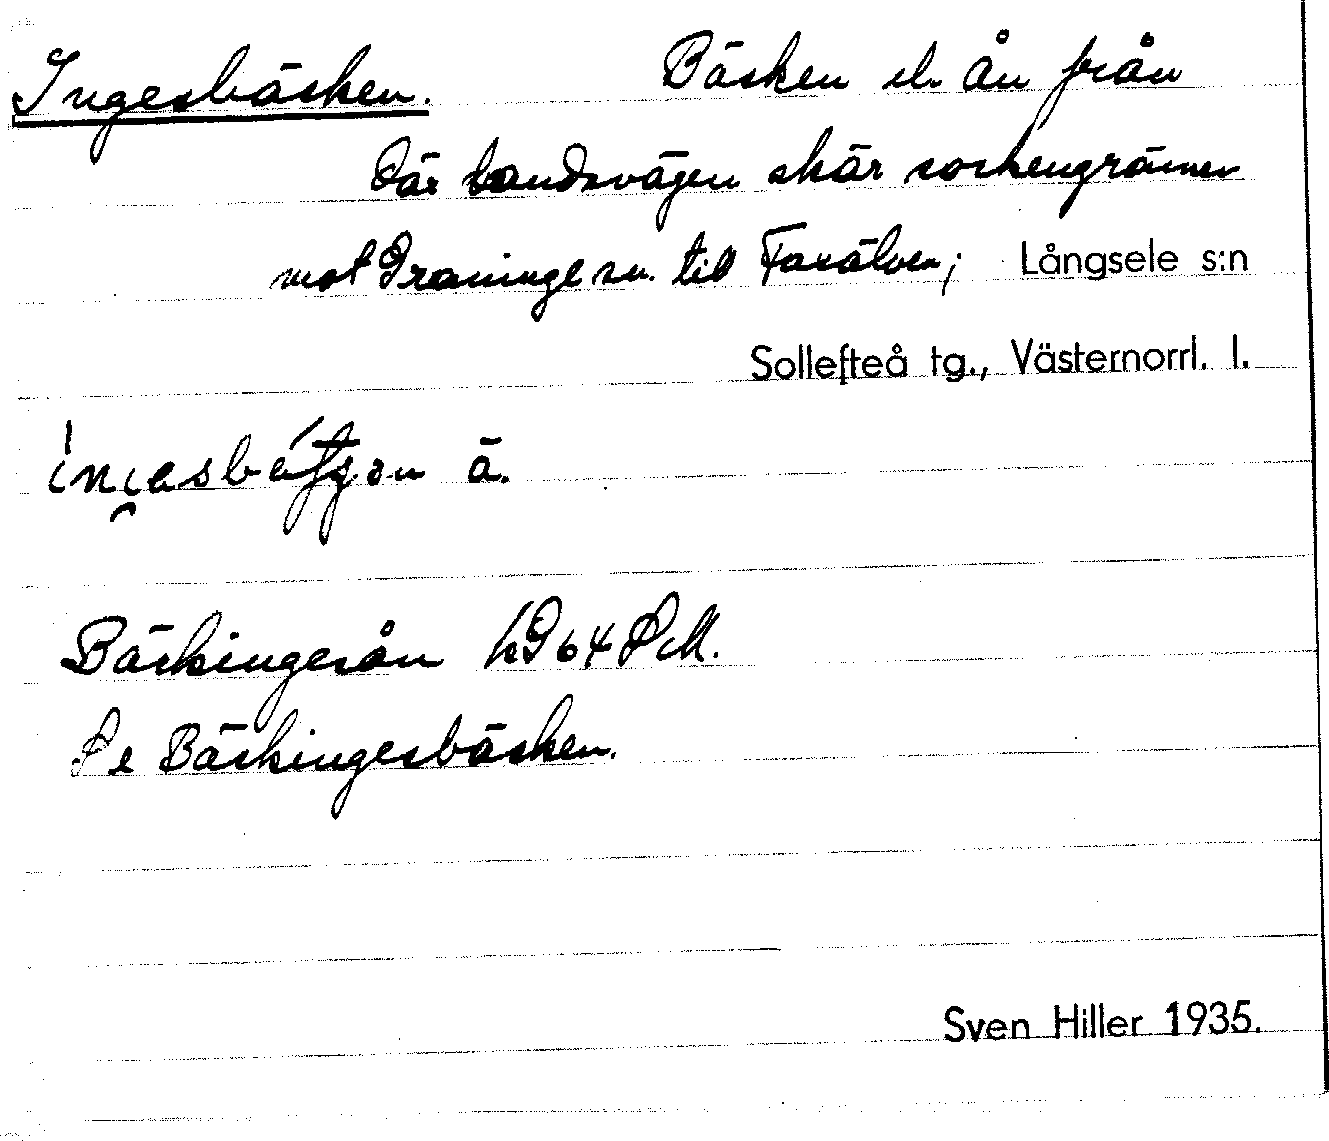 Ingesbäcken. Bäcken el. ån från
där landsvägen skär sockengränsen
mot Graninge sn. till Faxälven; Långsele s:n
Sollefteå tg., Västernorrl. l.
ä.
Bäckingesån
Se Bäckingesbäcken.
Sven Hiller 1935.